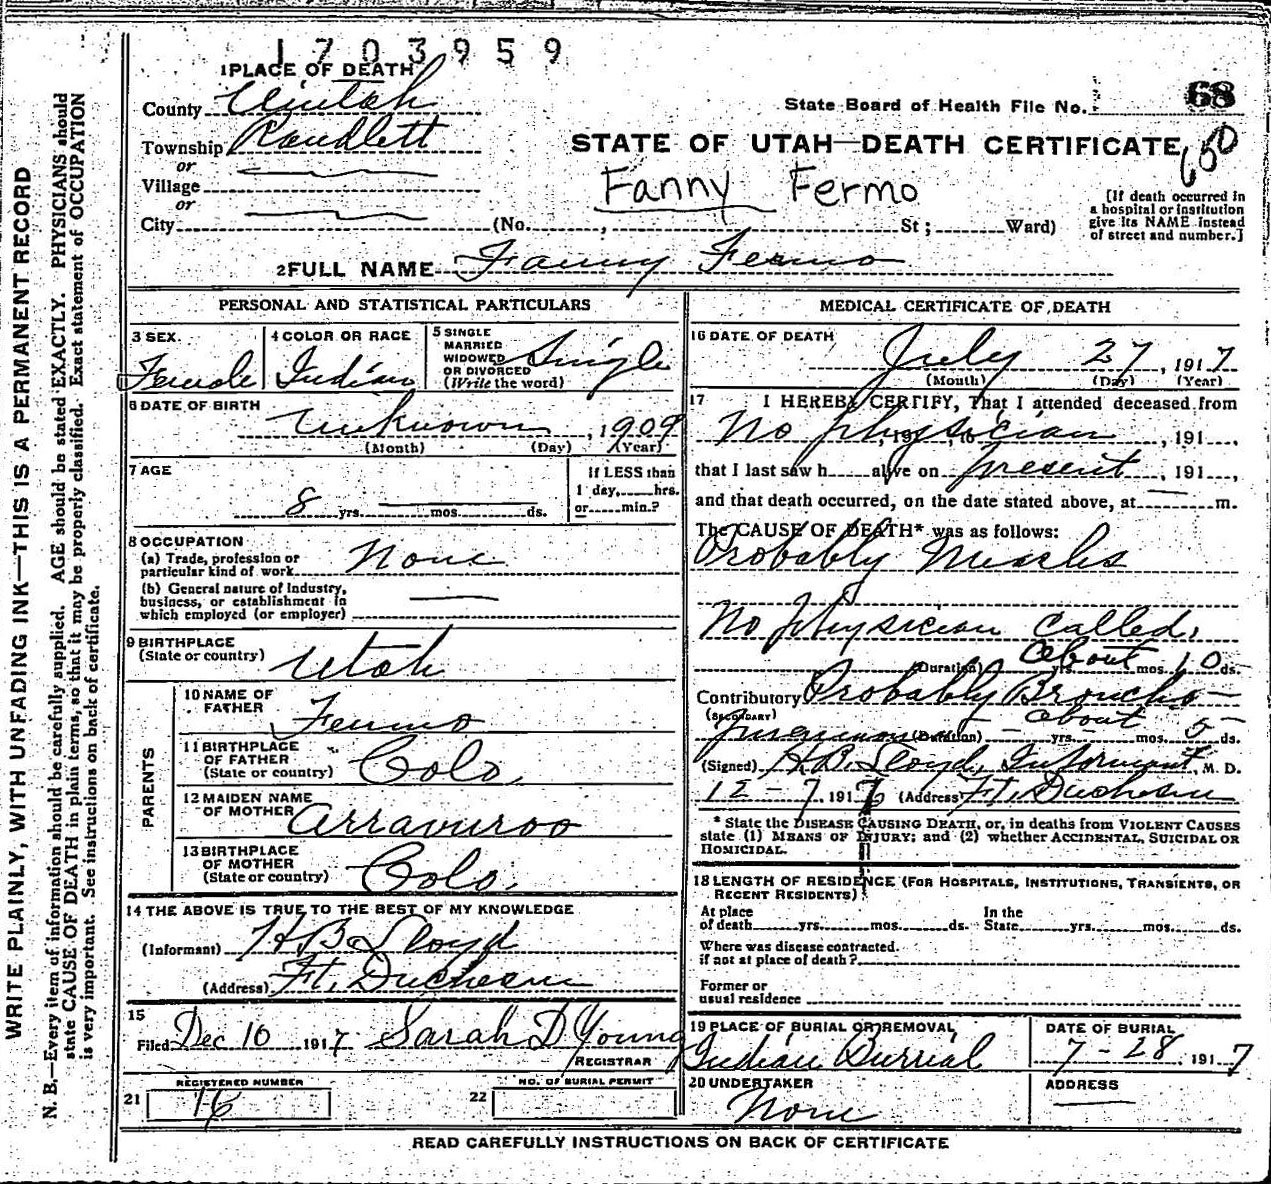 1703959
1 PLACE OF DEATH
County Uintah
State Board of Health File No. 68
Township Randlett
STATE OF UTAH—DEATH CERTIFICATE
or
Village
Fanny Fermo
[If death occurred in a hospital or institution give its NAME instead of street and number.]
or
City (No. , St; Ward)
2 FULL NAME Fanny Fermo
PERSONAL AND STATISTICAL PARTICULARS
3 SEX Female
4 COLOR OR RACE Indian
5 SINGLE MARRIED WIDOWED OR DIVORCED (Write the word) Single
6 DATE OF BIRTH
Unknown , 1909
(Month) (Day) (Year)
7 AGE
8 yrs. mos. ds.
If LESS than
1 day, hrs.
or min.?
8 OCCUPATION
(a) Trade, profession or
particular kind of work None
(b) General nature of Industry,
business, or establishment in
which employed (or employer)
9 BIRTHPLACE
(State or country) Utah
PARENTS
10 NAME OF FATHER Fermo
11 BIRTHPLACE OF FATHER (State or country) Colo.
12 MAIDEN NAME OF MOTHER Arravuroo
13 BIRTHPLACE OF MOTHER (State or country) Colo.
14 THE ABOVE IS TRUE TO THE BEST OF MY KNOWLEDGE
(Informant) H B Lloyd
(Address) Ft. Duchesne
15
Filed Dec 10 1917 Sarah D Young
REGISTRAR
REGISTERED NUMBER
21 16
NO. OF BURIAL PERMIT
22
MEDICAL CERTIFICATE OF DEATH
16 DATE OF DEATH
July 27, 1917
(Month) (Day) (Year)
17 I HEREBY CERTIFY, That I attended deceased from
No physician , 191 ,
that I last saw h alive on present, 191 ,
and that death occurred, on the date stated above, at m.
The CAUSE OF DEATH* was as follows:
Probably Measles
No physician called.
(Duration) about yrs. mos. 10 ds.
Contributory Probably Broncho-
(SECONDARY)
Pneumonia (Duration) about yrs. mos. 5 ds.
(Signed) H.B. Lloyd, Informant, M. D.
12-7, 1917 (Address) Ft. Duchesne
* State the DISEASE CAUSING DEATH, or, in deaths from VIOLENT CAUSES
state (1) MEANS OF INJURY; and (2) whether ACCIDENTAL, SUICIDAL OR
HOMICIDAL.
18 LENGTH OF RESIDENCE (FOR HOSPITALS, INSTITUTIONS, TRANSIENTS, OR
RECENT RESIDENTS)
At place of death yrs. mos. ds. In the State yrs. mos. ds.
Where was disease contracted.
if not at place of death?
Former or
usual residence
19 PLACE OF BURIAL OR REMOVAL
Indian Burrial
DATE OF BURIAL
7-28, 1917
20 UNDERTAKER
None
ADDRESS
READ CAREFULLY INSTRUCTIONS ON BACK OF CERTIFICATE
WRITE PLAINLY, WITH UNFADING INK—THIS IS A PERMANENT RECORD
N. B.—Every item of information should be carefully supplied. AGE should be stated EXACTLY. PHYSICIANS should
state CAUSE OF DEATH in plain terms, so that it may be properly classified. Exact statement of OCCUPATION
is very important. See instructions on back of certificate.